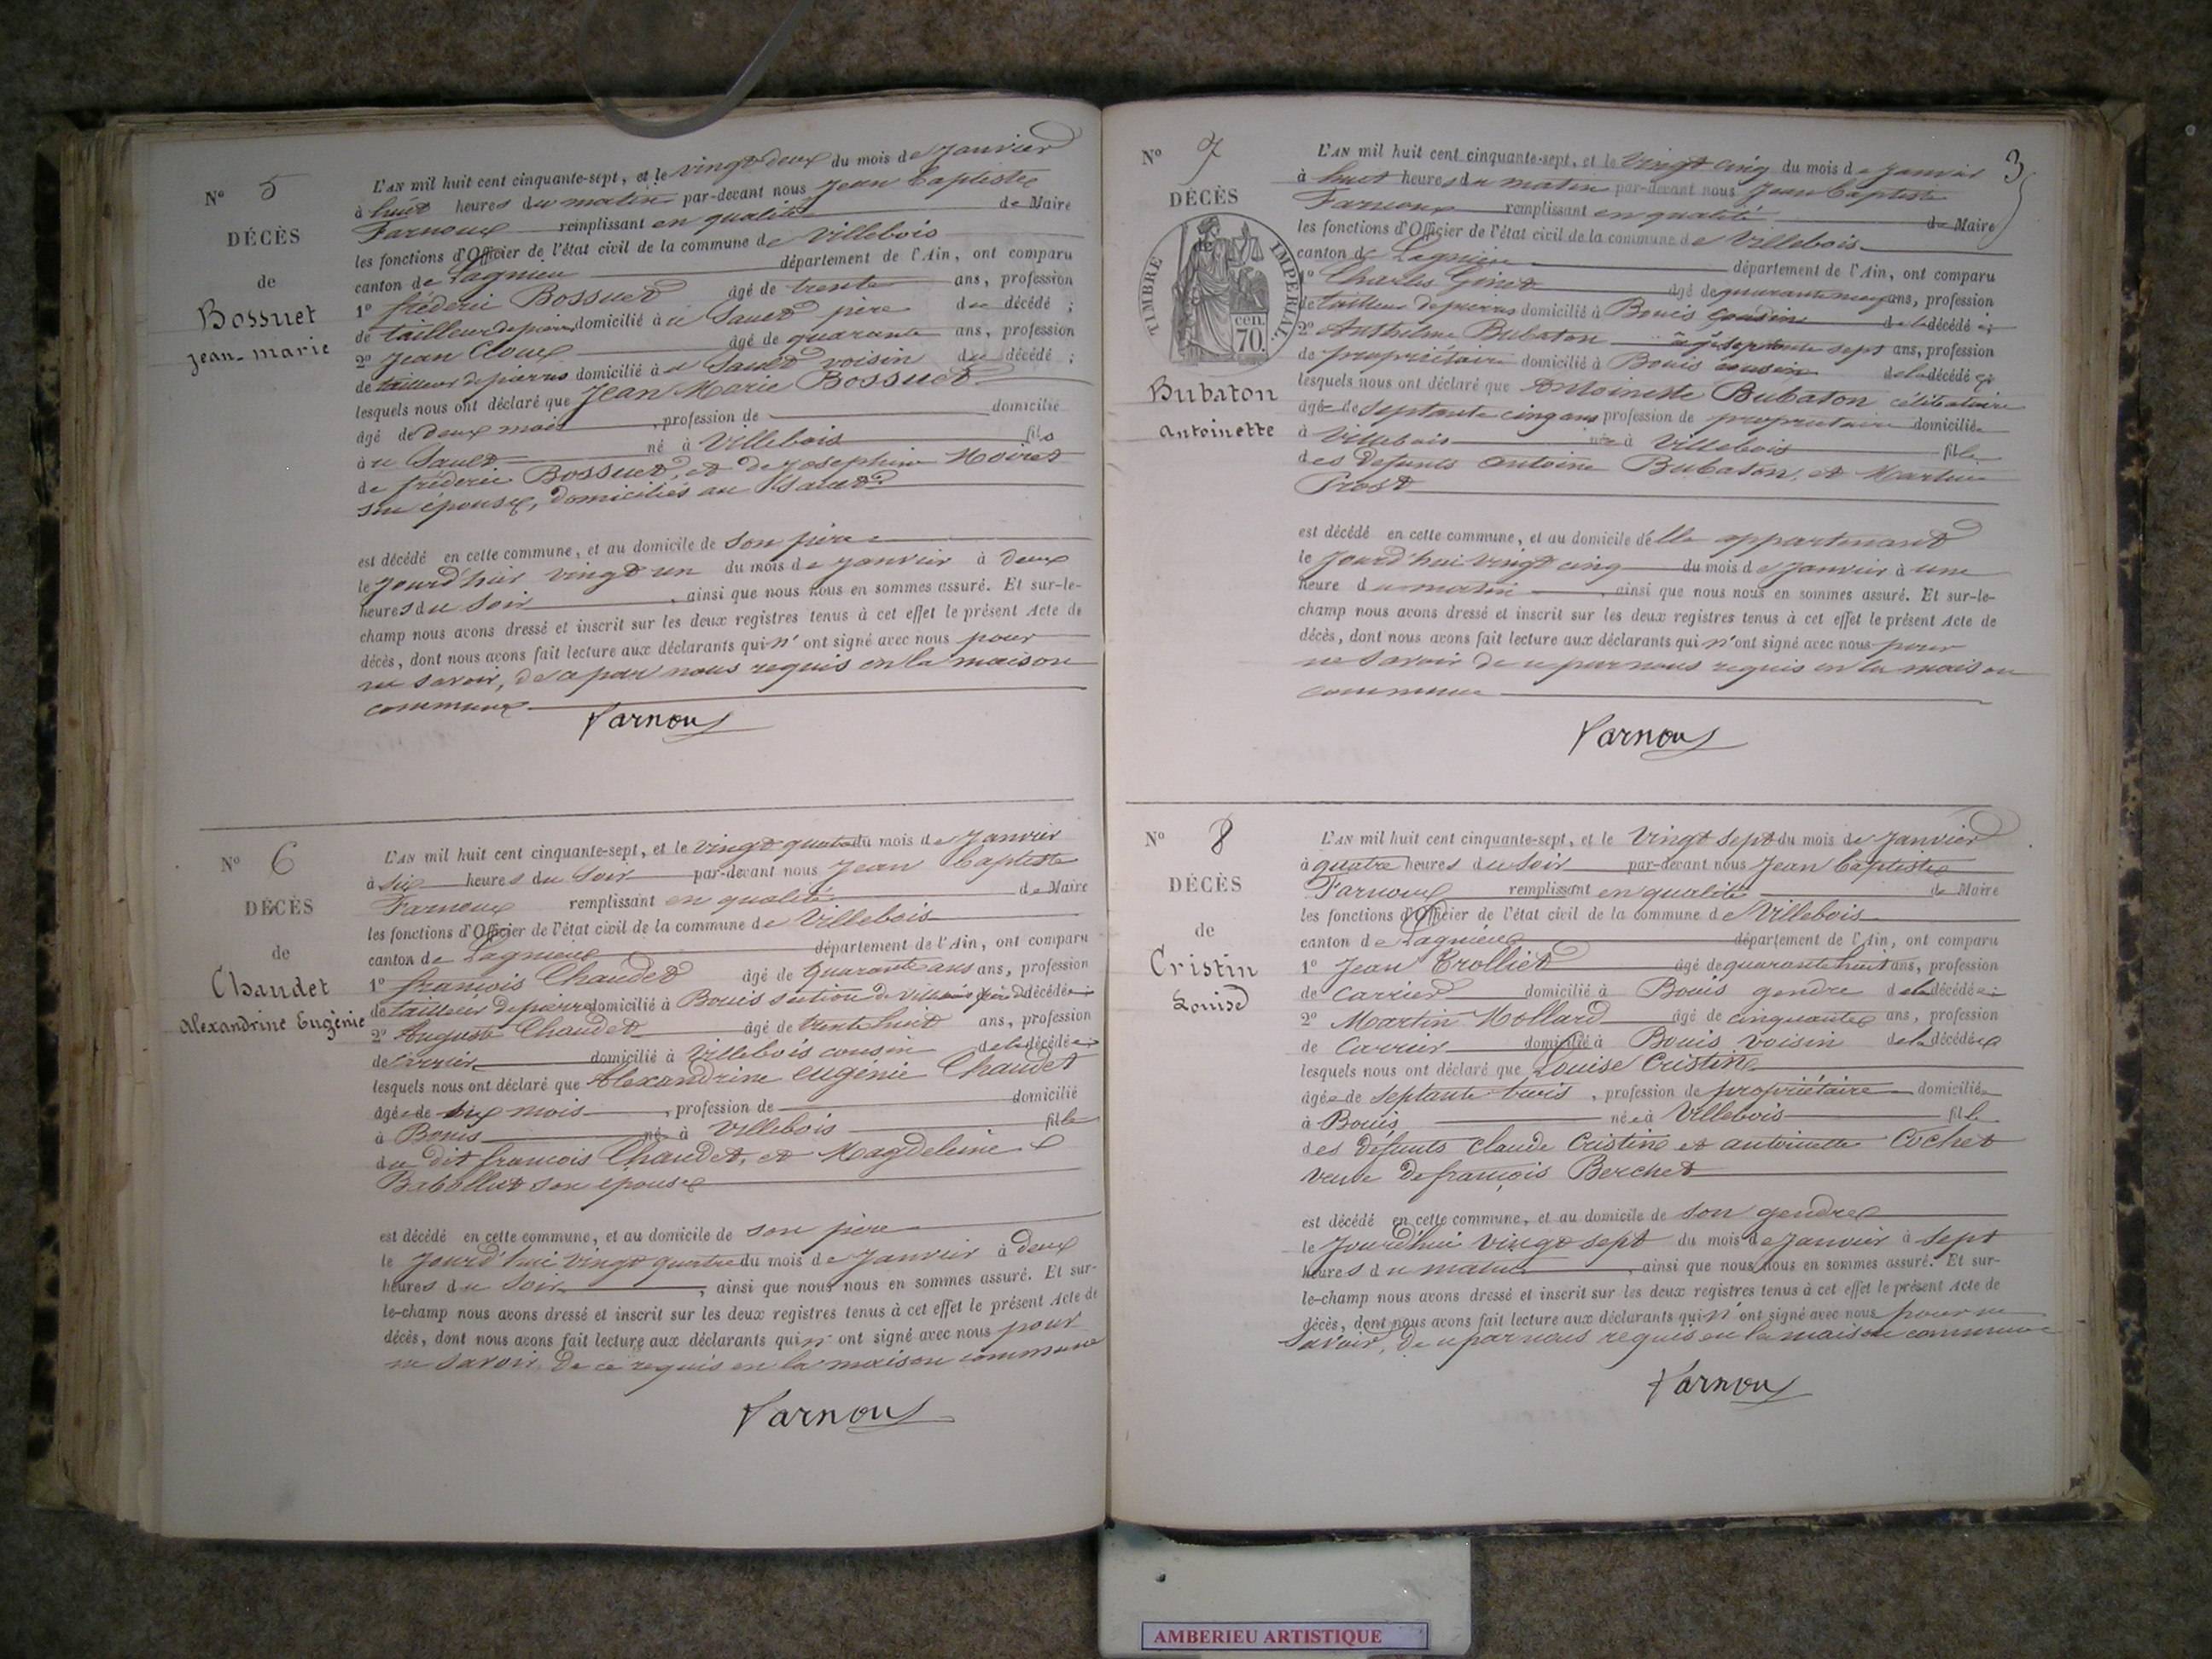 N° 5
DÉCÈS
de
Bossuet
jean-marie
L'AN mil huit cent cinquante-sept, et le vingt deux du mois de janvier
à huit heures du matin par-devant nous Jean Baptiste
Farnoux remplissant en qualité de Maire
les fonctions d'Officier de l'état civil de la commune de Villebois
canton de Lagnieu département de l'Ain, ont comparu
1° fréderic Bossuet âgé de trente ans, profession
de tailleur de pierres domicilié à u Sault père du décédé ;
2° Jean Cloux âgé de quarante ans, profession
de tailleur de pierres domicilié à u Sault voisin du décédé ;
lesquels nous ont déclaré que Jean Marie Bossuet
âgé de deux mois , profession de domicilié
à u Sault né à Villebois fils
de fréderic Bossuet, et de josephine Moiret
son épouse, domiciliés au Sault
est décédé en cette commune, et au domicile de son père
le jourd'hier vingt un du mois de janvier à deux
heures du soir , ainsi que nous nous en sommes assuré. Et sur-le-
champ nous avons dressé et inscrit sur les deux registres tenus à cet effet le présent Acte de
décès, dont nous avons fait lecture aux déclarants qui n'ont signé avec nous pour
ne savoir, de ce par nous requis en la maison
commune
Farnoux
N° 6
DÉCÈS
de
Chaudet
Alexandrine Eugènie
L'AN mil huit cent cinquante-sept, et le vingt quatre du mois de janvier
à six heures du soir par-devant nous Jean Baptiste
Farnoux remplissant en qualité de Maire
les fonctions d'Officier de l'état civil de la commune de Villebois
canton de Lagnieu département de l'Ain, ont comparu
1° françois Chaudet âgé de quarante ans ans, profession
de tailleur de pierre domicilié à Bouis section de villebois père de la décédée ;
2° Auguste Chaudet âgé de trente huit ans, profession
de carrier domicilié à Villebois cousin de la décédée
lesquels nous ont déclaré que Alexandrine eugénie Chaudet
âgée de six mois , profession de domicilié
à Bouis né à Villebois fille
du dit francois Chaudet, et Magdeleine
Babolliat son épouse
est décédé en cette commune, et au domicile de son père
le jourd'hui vingt quatre du mois de janvier à deux
heures du soir , ainsi que nous nous en sommes assuré. Et sur-
le-champ nous avons dressé et inscrit sur les deux registres tenus à cet effet le présent Acte de
décès, dont nous avons fait lecture aux déclarants qui n'ont signé avec nous pour
ne savoir de ce requis en la maison commune
Farnoux
3
N° 7
DÉCÈS
de
TIMBRE IMPÉRIAL
cen. 70.
Bubaton
Antoinette
L'AN mil huit cent cinquante-sept, et le vingt cinq du mois de janvier
à huit heures du matin par-devant nous Jean Baptiste
Farnoux remplissant en qualité de Maire
les fonctions d'Officier de l'état civil de la commune de Villebois
canton de Lagnieu département de l'Ain, ont comparu
1° Charles Ginet âgé de quarante neuf ans, profession
de tailleur de pierres domicilié à Bouis cousin de la décédée ;
2° Anthelme Bubaton âgé septante sept ans, profession
de propriétaire domicilié à Bouis cousin de la décédée ;
lesquels nous ont déclaré que Antoinette Bubaton célibataire
âgée de septante cinq ans profession de propriétaire domiciliée
à Villebois née à Villebois fille
des défunts Antoine Bubaton, et Martine
Prost
est décédé en cette commune, et au domicile d'elle appartenant
le jourd'hui vingt cinq du mois de janvier à une
heure du matin , ainsi que nous nous en sommes assuré. Et sur-le-
champ nous avons dressé et inscrit sur les deux registres tenus à cet effet le présent Acte de
décès, dont nous avons fait lecture aux déclarants qui n'ont signé avec nous pour
ne savoir de ce par nous requis en la maison
commune
Farnoux
N° 8
DÉCÈS
de
Cristin
Louise
L'AN mil huit cent cinquante-sept, et le vingt sept du mois de janvier
à quatre heures du soir par-devant nous Jean Baptiste
Farnoux remplissant en qualité de Maire
les fonctions d'Officier de l'état civil de la commune de Villebois
canton de Lagnieu département de l'Ain, ont comparu
1° Jean Trolliet âgé de quarante huit ans, profession
de carrier domicilié à Bouis gendre de la décédée ;
2° Martin Mollard âgé de cinquante ans, profession
de carrier domicilié à Bouis voisin de la décédée
lesquels nous ont déclaré que Louise Cristine
âgée de septante trois , profession de propriétaire domiciliée
à Bouis née à Villebois fille
des défunts Claude Cristine et antoinette Cochet
veuve de françois Berchet
est décédé en cette commune, et au domicile de son gendre
le jourd'hui vingt sept du mois de janvier à sept
heures du matin , ainsi que nous nous en sommes assuré. Et sur-
le-champ nous avons dressé et inscrit sur les deux registres tenus à cet effet le présent Acte de
décès, dont nous avons fait lecture aux déclarants qui n'ont signé avec nous pour ne
savoir, de ce par nous requis en la maison commune
Farnoux
AMBERIEU ARTISTIQUE